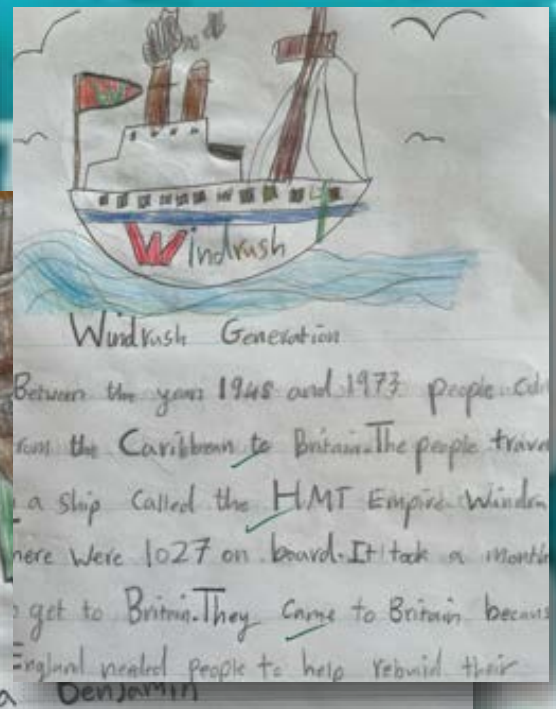 Windrush
Windrush Generation
Between the year 1948 and 1973 people
the Caribbean to Britain. The people
a ship called the HMT Empire
were 1027 on board. It took a month
get to Britain. They came to Britain
England needed people to help rebuid their
Benjamin